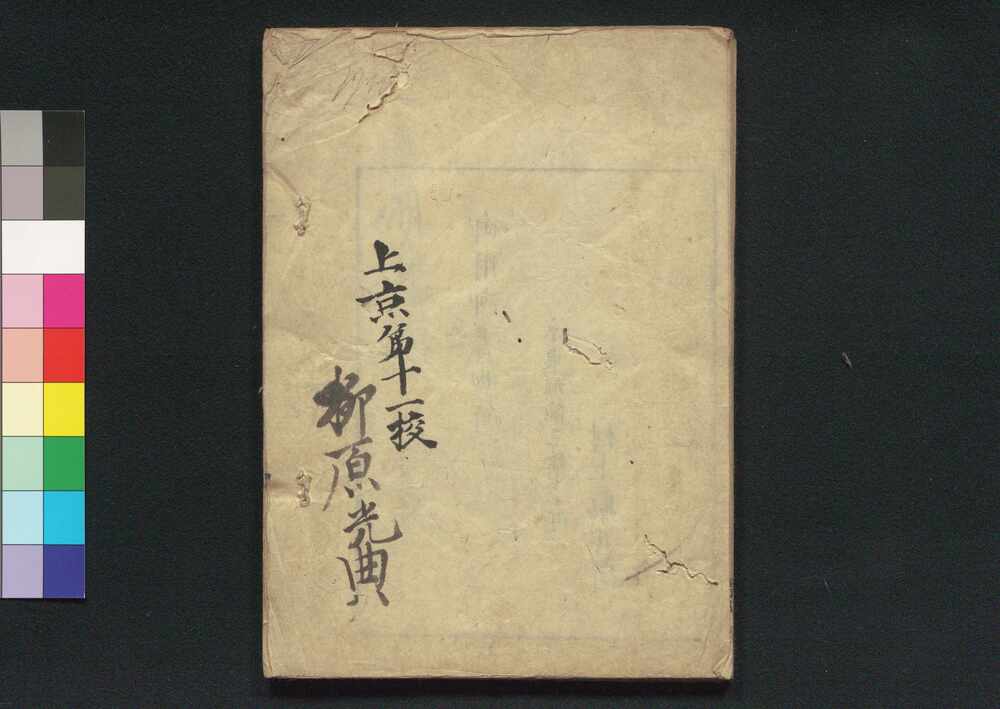 上京第十一校
柳原光典